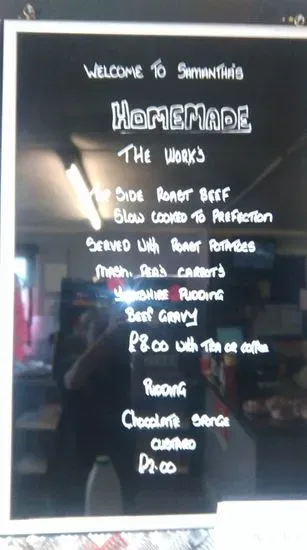 WELCOME TO SAMANTHA'S
HOMEMADE
THE WORK'S
TOP SIDE ROAST BEEF
SLOW COOKED TO PREFACTION
SERVED WITH ROAST POTATOES
MASH, PEA'S CARROT'S
YORKSHIRE PUDDING
BEEF GRAVY
£8.00 WITH TEA OR COFFEE
PUDDING
CHOCOLATE SPONGE
CUSTARD
£2.00